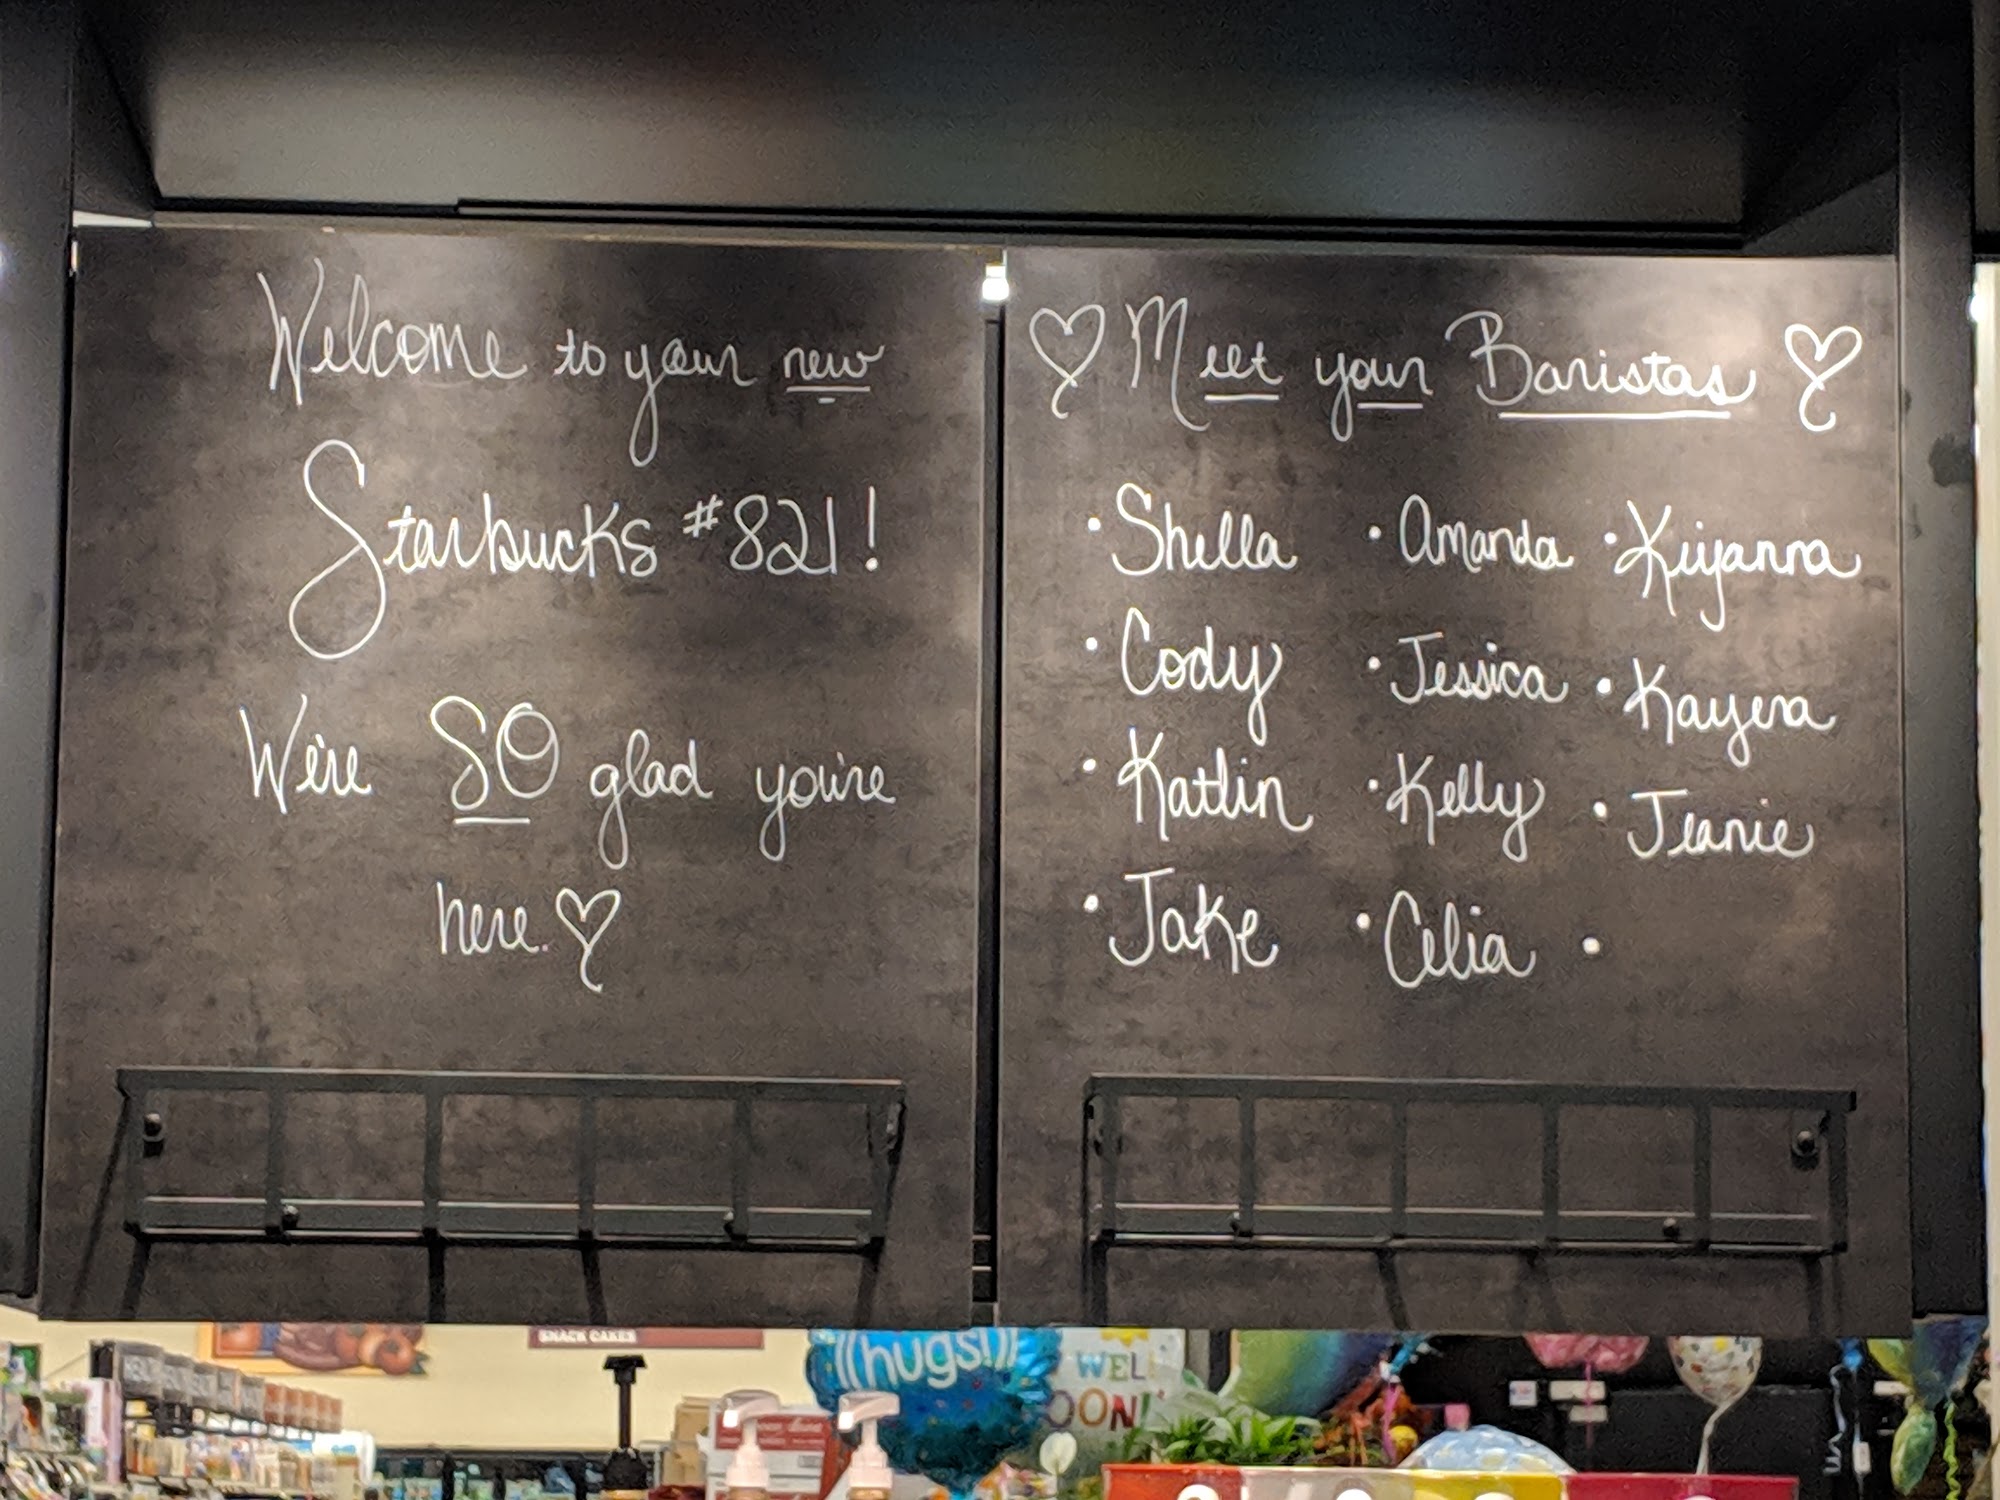 Welcome to your new
Starbucks #821!
We're SO glad you're
here.
Meet your Baristas
• Shella • Amanda • Kiyanna
• Cody • Jessica • Kayera
• Katlin • Kelly • Jeanie
• Jake • Celia •
SNACK CAKES
(((hugs)))
WEL
OON!